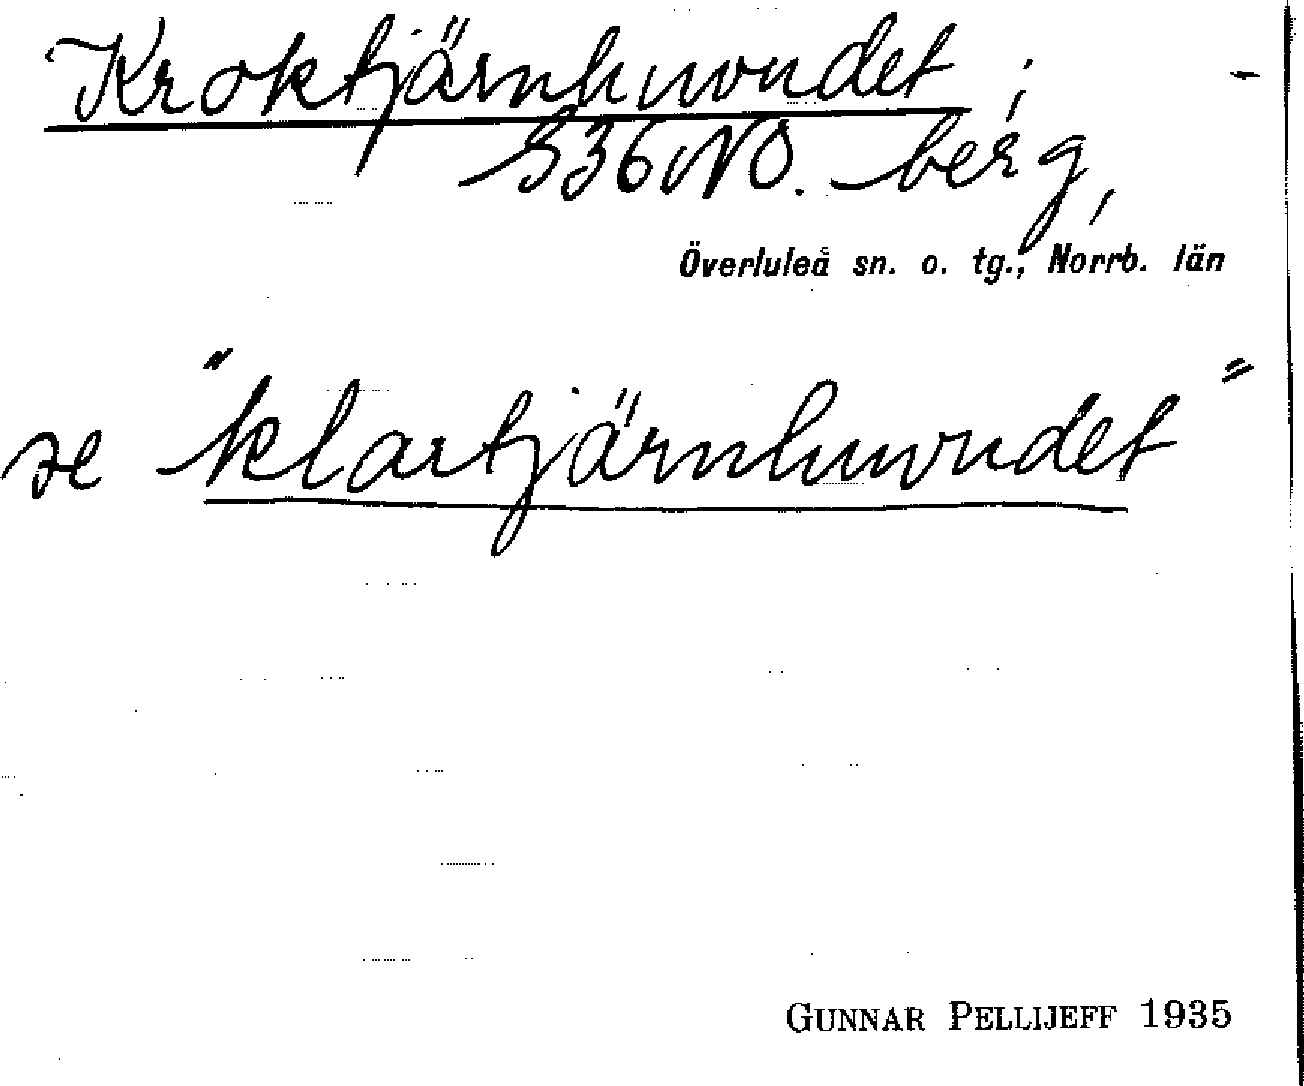 Kroktjärnhuvudet;
S36NO. berg,
Överluleå sn. o. tg., Norrb. län
se "klartjärnhuvudet"
GUNNAR PELLIJEFF 1935